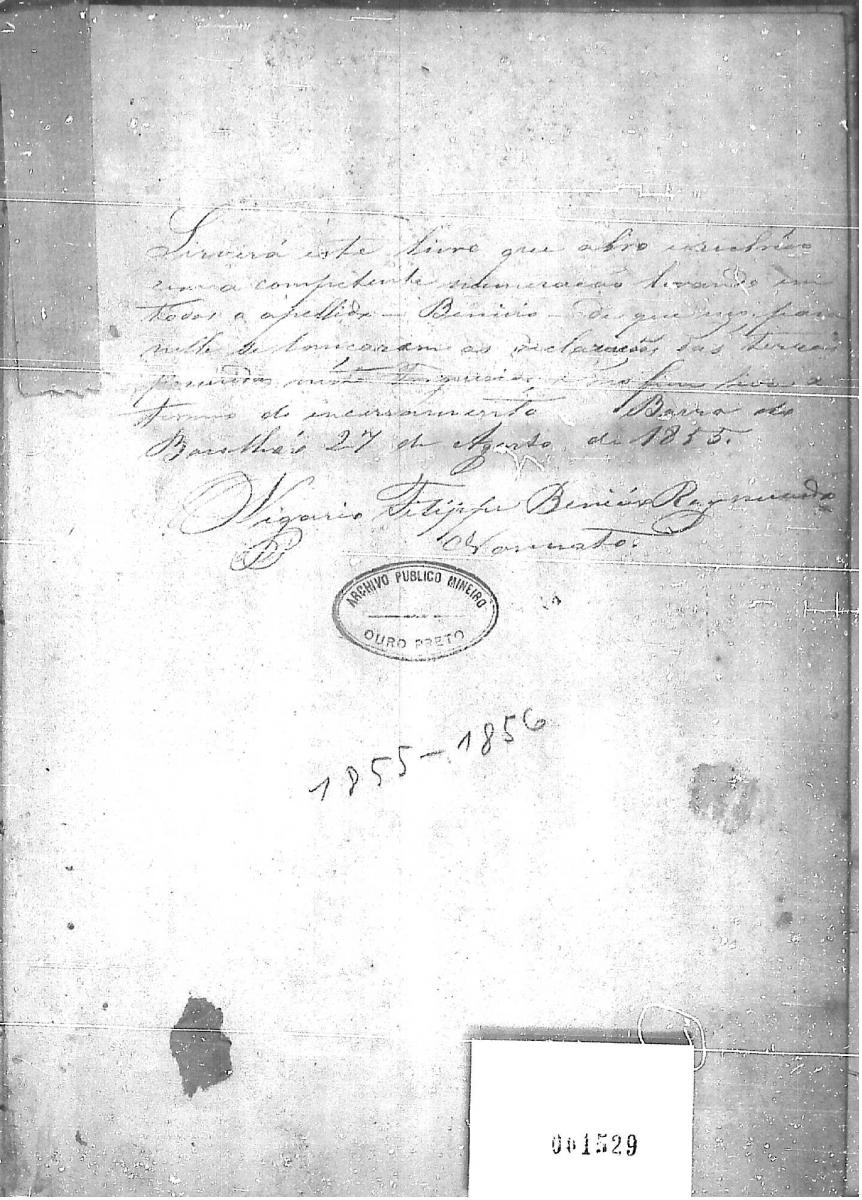 Servirá este livro que abro e rubrico
com a competente numeração levando em
todas o apellido – Benicio – de que uso, para
nelle se lançarem as declarações das terras
possuidas nesta Freguesia, e no fim leva o
termo de encerramento Barra do
Bacalháo 27 de Agosto de 1855.
Vigario Felippe Benicio Raymundo
Nonnato.
ARCHIVO PUBLICO MINEIRO
OURO PRETO
1855-1856
001529